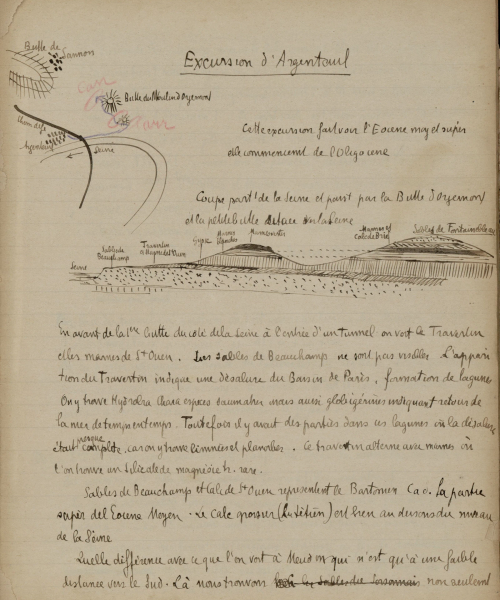 Butte de
Sannois
Excursion d'Argenteuil
Carr
Butte du Moulin d'Orgemont
Chem de f
Argenteuil
Seine
Cette excursion fait voir l'Eocene moy et super
et le commencemt de l'Oligocene
Coupe part! de la Seine et passt par la Butte d'Orgemont
et la petite butte
Sables de
Beauchamp
Travertin
Gypse
Marnes
Marnes vertes
Marnes et
calc de Brie
Sables de Fontainebleau
Seine
En avant de la 1re butte du coté de la Seine à l'entrée d'un tunnel on voit le Travertin
et les marnes de St Ouen. Les sables de Beauchamp ne sont pas visibles L'appari
tion du Travertin indique une désalure du Bassin de Paris, formation de lagunes
On y trouve Hydrobia espèces saumatres mais aussi globigérines indiquant retour de
la mer de temps en temps. Toutefois il y avait des parties dans ces lagunes où la désalure
était presque complète, car on y trouve limnées et planorbes. Ce travertin alterne avec marnes où
l'on trouve un silicate de magnésie h. rare.
Sables de Beauchamp et Calc de St Ouen representent le Bartonien Cad. La partie
super del Eocene Moyen. Le calc grossier (Lutétien) est bien au dessous du niveau
de la Seine
Quelle différence avec ce que l'on voit à Meudon qui n'est qu'à une faible
distance vers le Sud. Là nous trouvons non seulemt